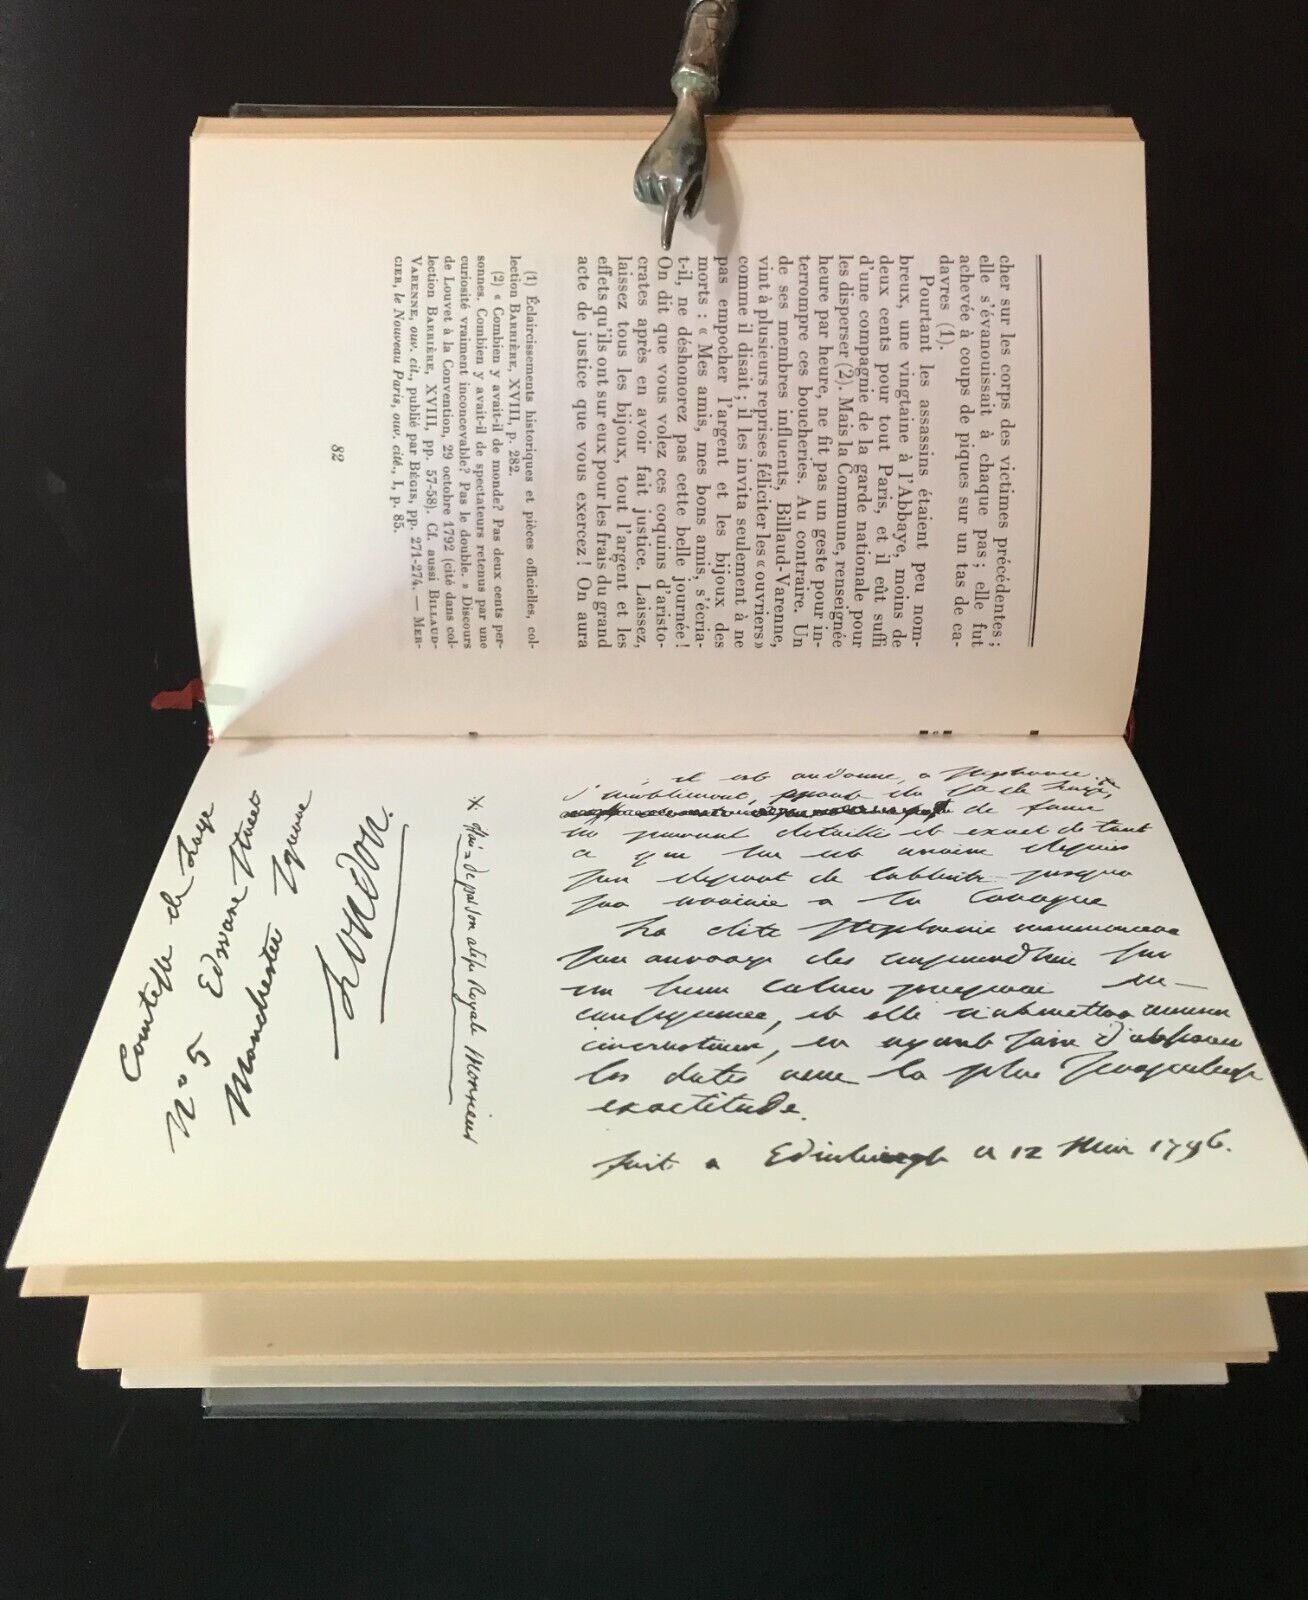 cher sur les corps des victimes précédentes ;
elle s'évanouissait à chaque pas ; elle fut
achevée à coups de piques sur un tas de ca-
davres (1).
Pourtant les assassins étaient peu nom-
breux, une vingtaine à l'Abbaye, moins de
deux cents pour tout Paris, et il eût suffi
d'une compagnie de la garde nationale pour
les disperser (2). Mais la Commune, renseignée
heure par heure, ne fit pas un geste pour in-
terrompre ces boucheries. Au contraire. Un
de ses membres influents, Billaud-Varenne,
vint à plusieurs reprises féliciter les « ouvriers »
comme il disait ; il les invita seulement à ne
pas empocher l'argent et les bijoux des
morts : « Mes amis, mes bons amis, s'écria-
t-il, ne déshonorez pas cette belle journée !
On dit que vous volez ces coquins d'aristo-
crates après en avoir fait justice. Laissez,
laissez tous les bijoux, tout l'argent et les
effets qu'ils ont sur eux pour les frais du grand
acte de justice que vous exercez ! On aura
(1) Éclaircissements historiques et pièces officielles, col-
lection BARRIÈRE, XVIII, p. 282.
(2) « Combien y avait-il de monde? Pas deux cents per-
sonnes. Combien y avait-il de spectateurs retenus par une
curiosité vraiment inconcevable? Pas le double. » Discours
de Louvet à la Convention, 29 octobre 1792 (cité dans col-
lection BARRIÈRE, XVIII, pp. 57-58). Cf. aussi BILLAUD-
VARENNE, ouv. cit., publié par BÉGIS, pp. 271-274. — MER-
CIER, le Nouveau Paris, ouv. cité., I, p. 85.
82
il est ordonné, a Stephanie
de faire
un detaillé et exact de tout
ce que lui est arrivé depuis
son depart de jusqua
son arrivée a la
La dite Stephanie commencera
son ouvrage des aujourdhui sur
un beau cahier preparé en
consequence, et elle n'obmettra aucune
circonstance, en ayant soin d'
les dates avec la plus scrupuleuse
exactitude.
fait a Edinburgh a 12 1796.
x. de par son altesse Royale Monsieur
Comtesse de
No 5 Edware Street
Manchester Square
London.